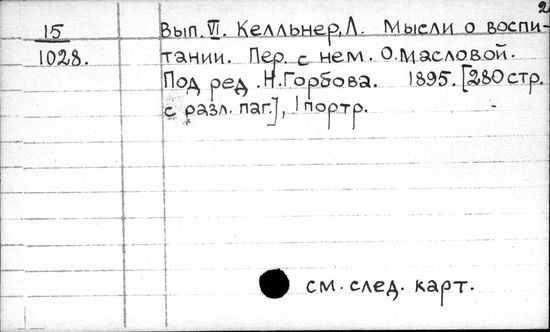 2
15
1028.
Вып. VI. Келльнер, Л. Мысли о воспи-
тании. Пер. с нем. О. Масловой.
Под ред. Н. Горбова. 1895. [280 стр.
с разл. паг.], 1 портр.
см. след. карт.